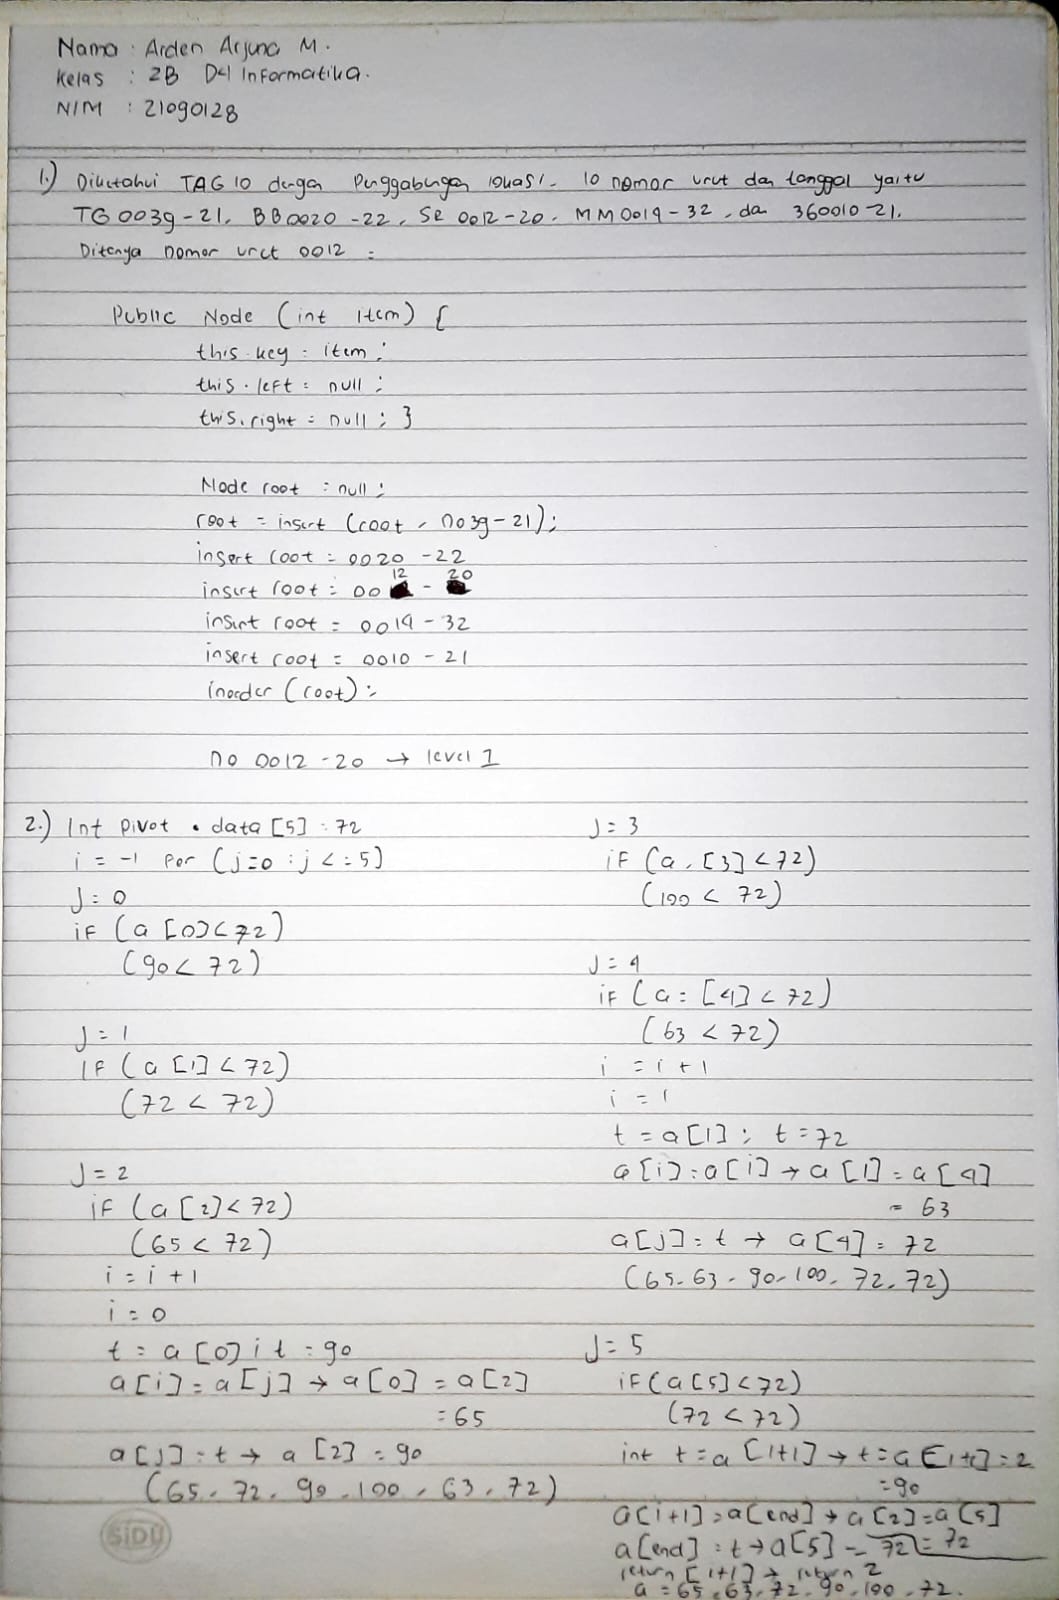 Nama : Arden Arjuna M.
Kelas : 2B D4 Informatika.
NIM : 21090128
1.) Diketahui TAG 10 dengan Penggabungan lokasi. 10 nomor urut dan tanggal yaitu
TG 0039-21, BB0020-22, SR 0012-20. MM0019-32, dan 360010-21.
Ditanya nomor urut 0012 =
Public Node (int item) {
this.key = item ;
this.left = null ;
this.right = null ; }
Node root = null ;
root = insert (root, no39-21);
insert root = 0020 -22
insert root = 0012 - 20
insert root = 0019 - 32
insert root = 0010 - 21
inorder (root) ;
no 0012 -20 → level 1
2.) Int pivot . data [5] : 72
i = -1 for (j=0 : j <= 5)
J = 0
if (a [0] < 72)
(90 < 72)
J = 1
if (a [1] < 72)
(72 < 72)
J = 2
if (a [2] < 72)
(65 < 72)
i = i + 1
i = 0
t = a [0] i t = 90
a [i] = a [j] → a [0] = a [2]
= 65
a [j] : t → a [2] = 90
(65, 72, 90, 100, 63, 72)
J = 3
if (a. [3] < 72)
(100 < 72)
J = 4
if (a = [4] < 72)
(63 < 72)
i = i + 1
i = 1
t = a [1] ; t = 72
a [i] : a [i] → a [1] = a [4]
= 63
a [j] = t → a [4] = 72
(65, 63, 90, 100, 72, 72)
J = 5
if (a [5] < 72)
(72 < 72)
int t = a [1+1] → t = a [1+1] = 2
= 90
a [i+1] = a [end] → a [2] = a [5]
a [end] : t → a [5] = 72 = 72
return [1+1] → return 2
a = 65, 63, 72, 90, 100, 72.
SIDU